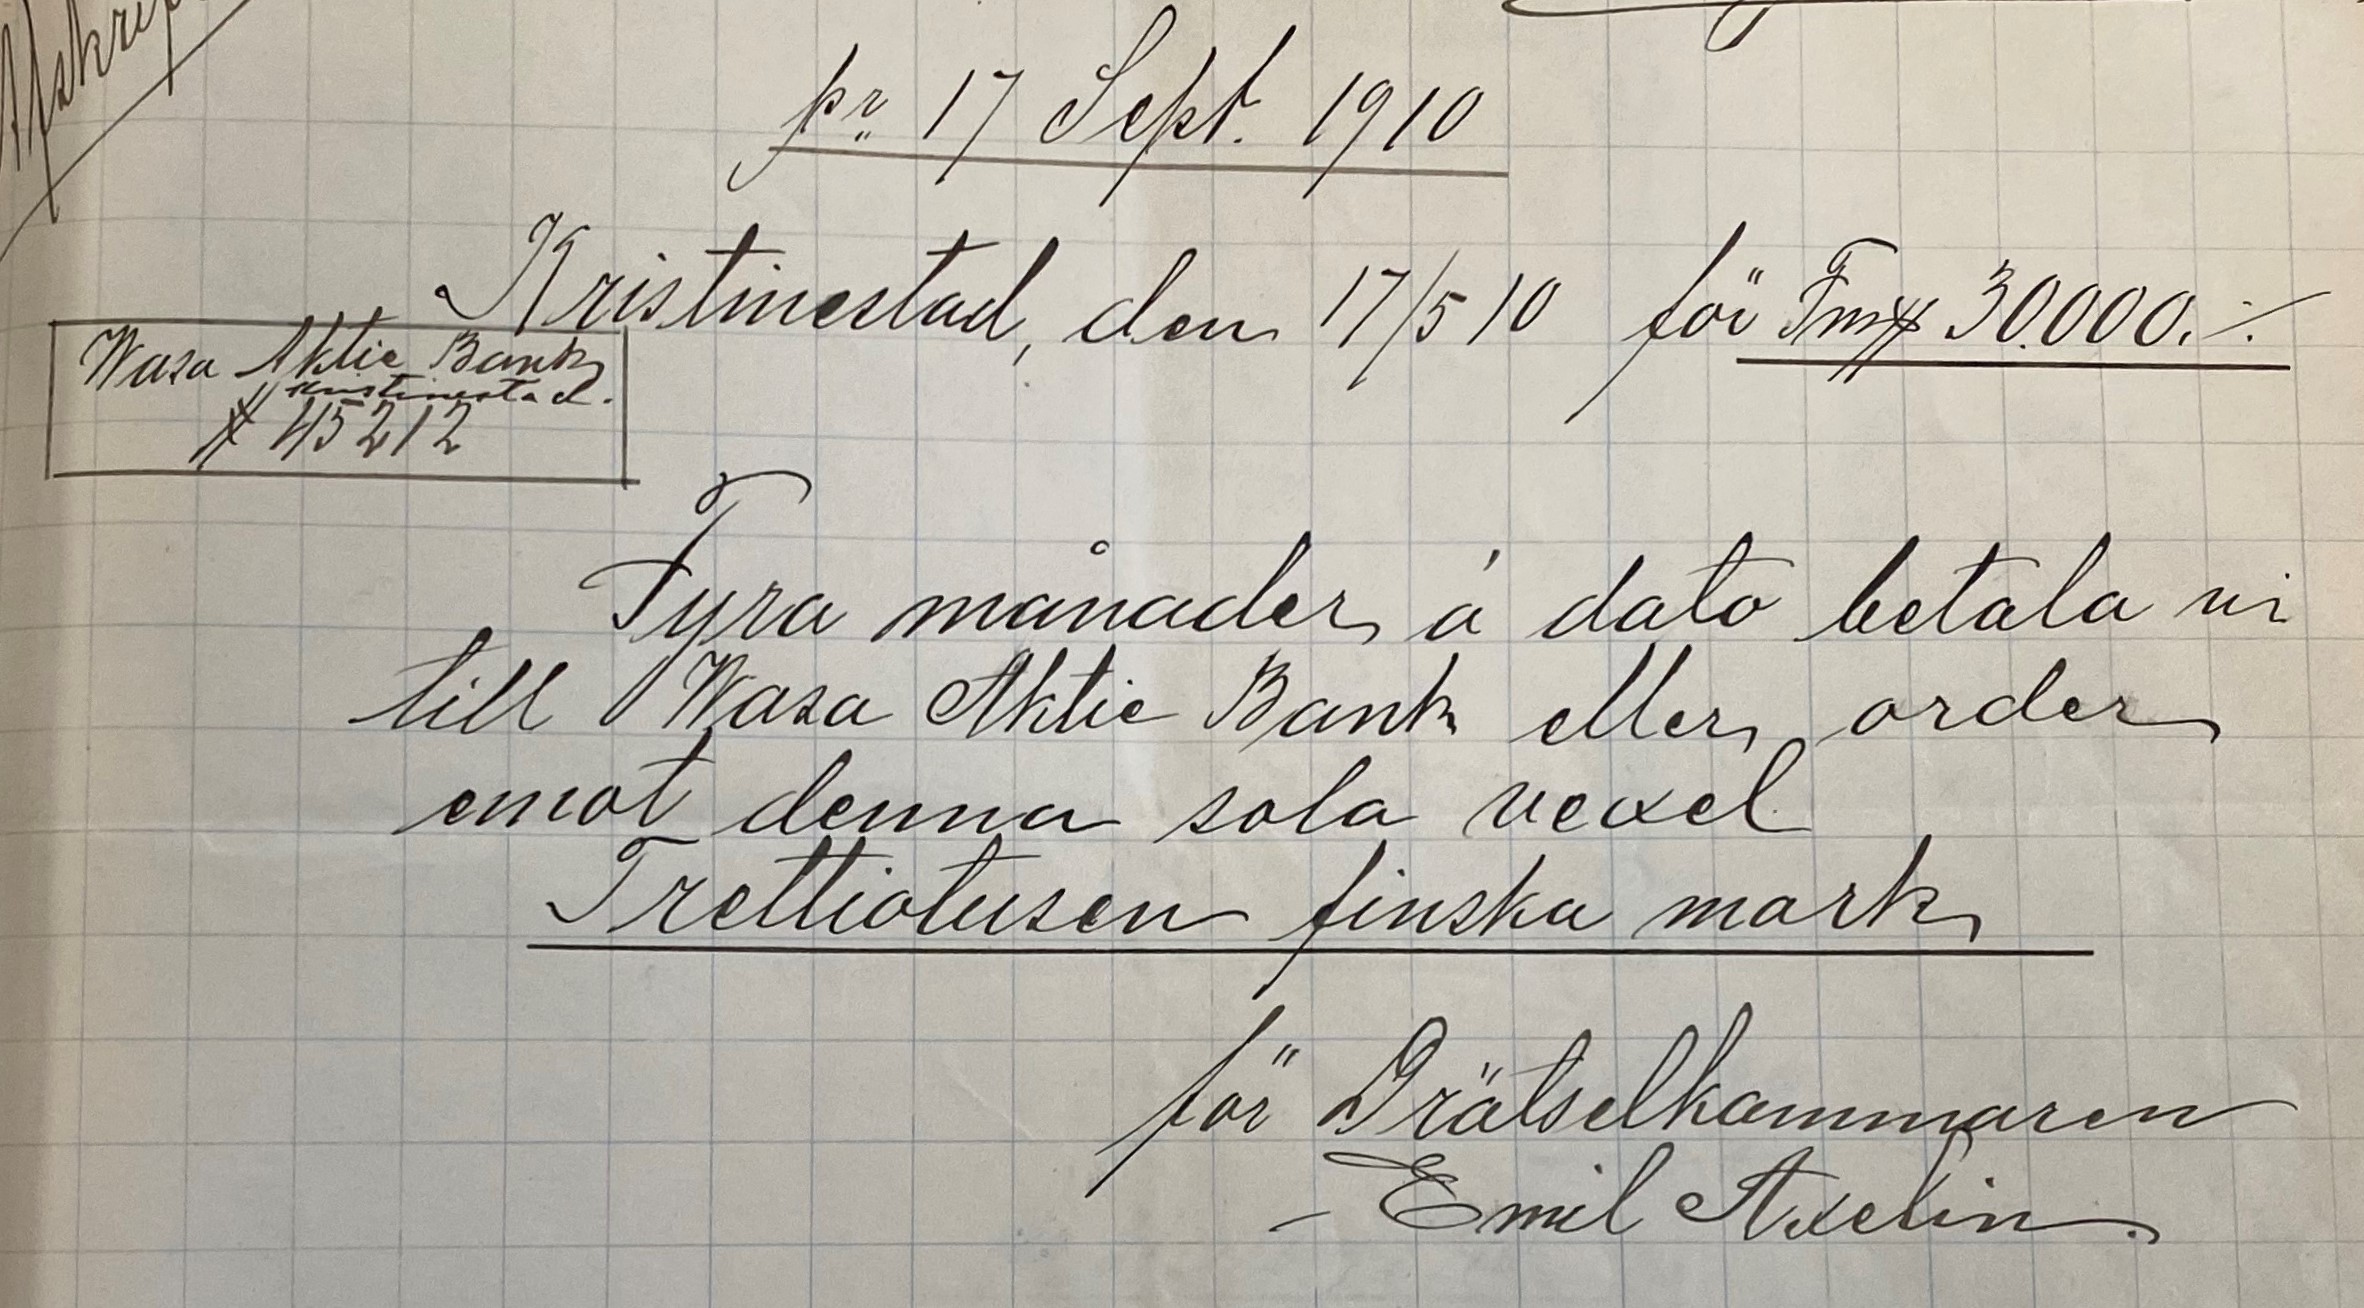 Afskrift
pr 17 Sept. 1910
Kristinestad, den 17/5 10 för Fmk 30.000.-
Wasa Aktie Bank
Kristinestad.
# 45212
Fyra månader á dato betala vi
till Wasa Aktie Bank eller order
emot denna sola vexel
Trettiotusen finska mark
för Drätselkammaren
Emil Axelin.